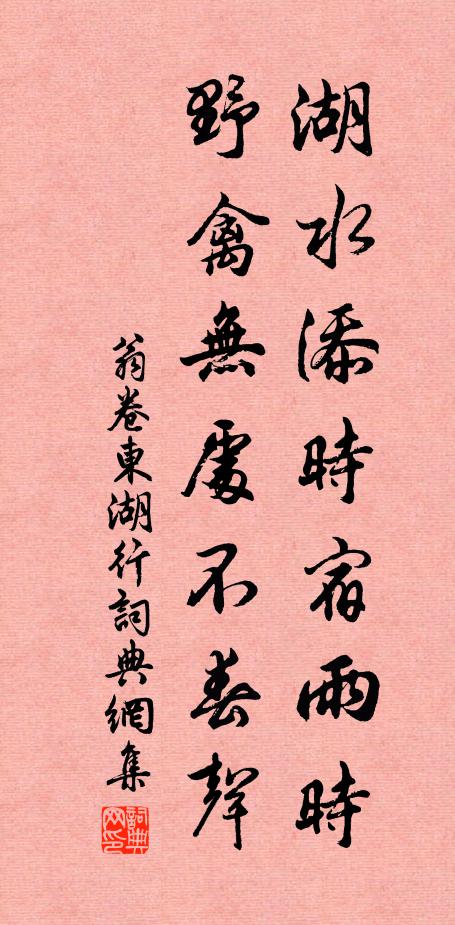 湖水添時宿雨時
野禽無處不春聲
翁卷東湖行詞典網集
詞典网印